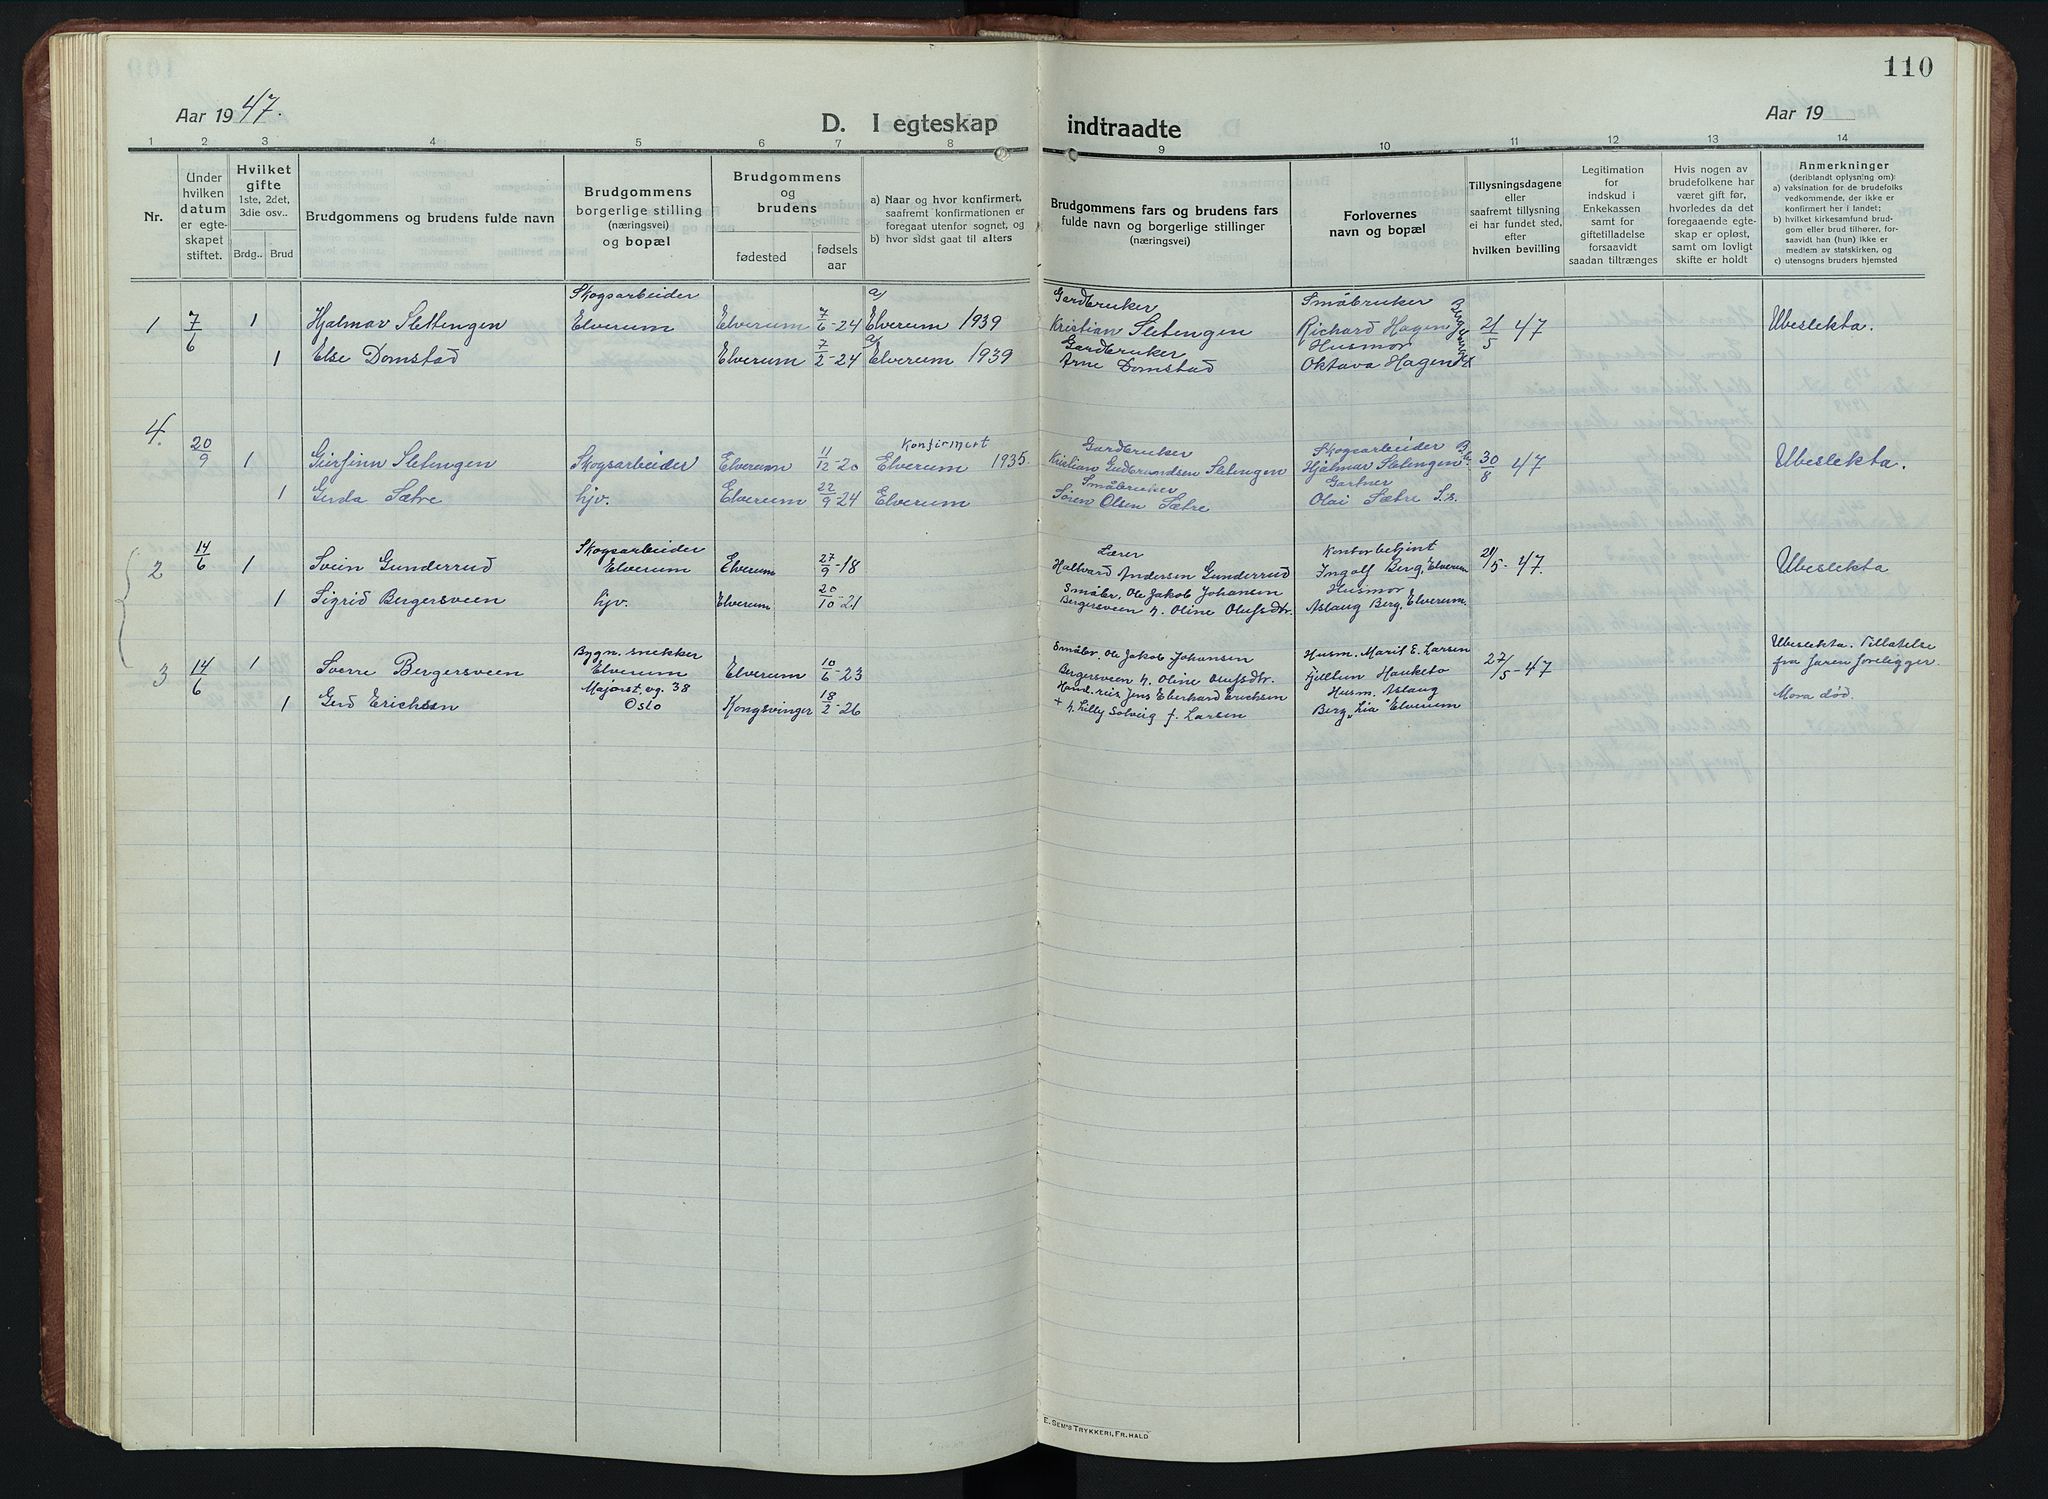 110
Aar 1947.
D. I egteskap indtraadte
Aar 19
1 2 3 4 5 6 7 8 9 10 11 12 13 14
Nr.
Under
hvilken
datum
er egte-
skapet
stiftet.
Hvilket
gifte
1ste, 2det,
3die osv..
Brdg.. Brud
Brudgommens og brudens fulde navn
Brudgommens
borgerlige stilling
(næringsvei)
og bopæl
Brudgommens
og
brudens
fødested
fødsels
aar
a) Naar og hvor konfirmert,
saafremt konfirmationen er
foregaat utenfor sognet, og
b) hvor sidst gaat til alters
Brudgommens fars og brudens fars
fulde navn og borgerlige stillinger
(næringsvei)
Forlovernes
navn og bopæl
Tillysningsdagene
eller
saafremt tillysning
ei har fundet sted,
efter
hvilken bevilling
Legitimation
for
indskud i
Enkekassen
samt for
giftetilladelse
forsaavidt
saadan tiltrænges
Hvis nogen av
brudefolkene har
været gift før,
hvorledes da det
foregaaende egte-
skap er opløst,
samt om lovligt
skifte er holdt
Anmerkninger
(deriblandt oplysning om):
a) vaksination for de brudefolks
vedkommende, der ikke er
konfirmert her i landet;
b) hvilket kirkesamfund brud-
gom eller brud tilhører, for-
saavidt han (hun) ikke er
medlem av statskirken, og
c) utensogns bruders hjemsted
Skogsarbeider a) Gardbruker Småbruker
1 7/6 1 Hjalmar Slettengen Elverum Elverum 7/6-24 Elverum 1939 Kristian Sletengen Richard Hagen 21/5 47 Ubeslekta.
a) Gardbruker Husmor
1 Else Domstad Elverum 7/2-24 Elverum 1939 Arne Domstad Oktava Hagen
4. Konfirmert Gardbruker Skogsarbeider
20/9 1 Geirfinn Sletengen Skogsarbeider Elverum 11/12-20 Elverum 1935. Kristian Gudbrandsen Sletengen Hjalmar Sletengen 30/8 47 Ubeslekta.
Småbruker Gartner
1 Gerda Sætre hjv. Elverum 22/9 24 Elverum Søren Olsen Sætre Olai Sætre S.s.
Skogsarbeider Lærer Kontorbetjent
2 14/6 1 Svein Gunderrud Elverum Elverum 27/9-18 Hallvard Andersen Gunderrud Ingolf Berg, Elverum 21/5-47. Ubeslekta
Småbr. Ole Jakob Johansen Husmor
1 Sigrid Bergersveen hjv. Elverum 20/10-21 Bergersveen h. Oline Olufsdtr. Aslaug Berg, Elverum.
Bygn. snekker Småbr. Ole Jakob Johansen Husm. Marit E. Larsen Ubeslekta. Tillatelse
3 14/6 1 Sverre Bergersveen Elverum Elverum 10/6-23 Bergersveen h. Oline Olufsdtr. Fjelltun Hauketo 27/5-47 fra faren foreligger.
Majorst. vg. 38 Hand. reis Jens Eberhard Erichsen Husm. Aslaug Mora død.
1 Gerd Erichsen Oslo Kongsvinger 18/2-26 + h. Lilly Solveig f. Larsen Berg „Lia" Elverum
E. SEM'S TRYKKERI, FR. HALD